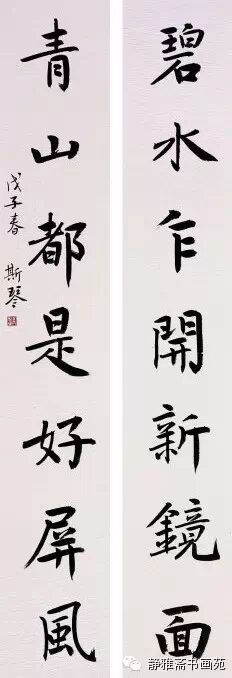 碧水乍開新鏡面
青山都是好屏風
戊子春 斯琴
静雅斋书画苑